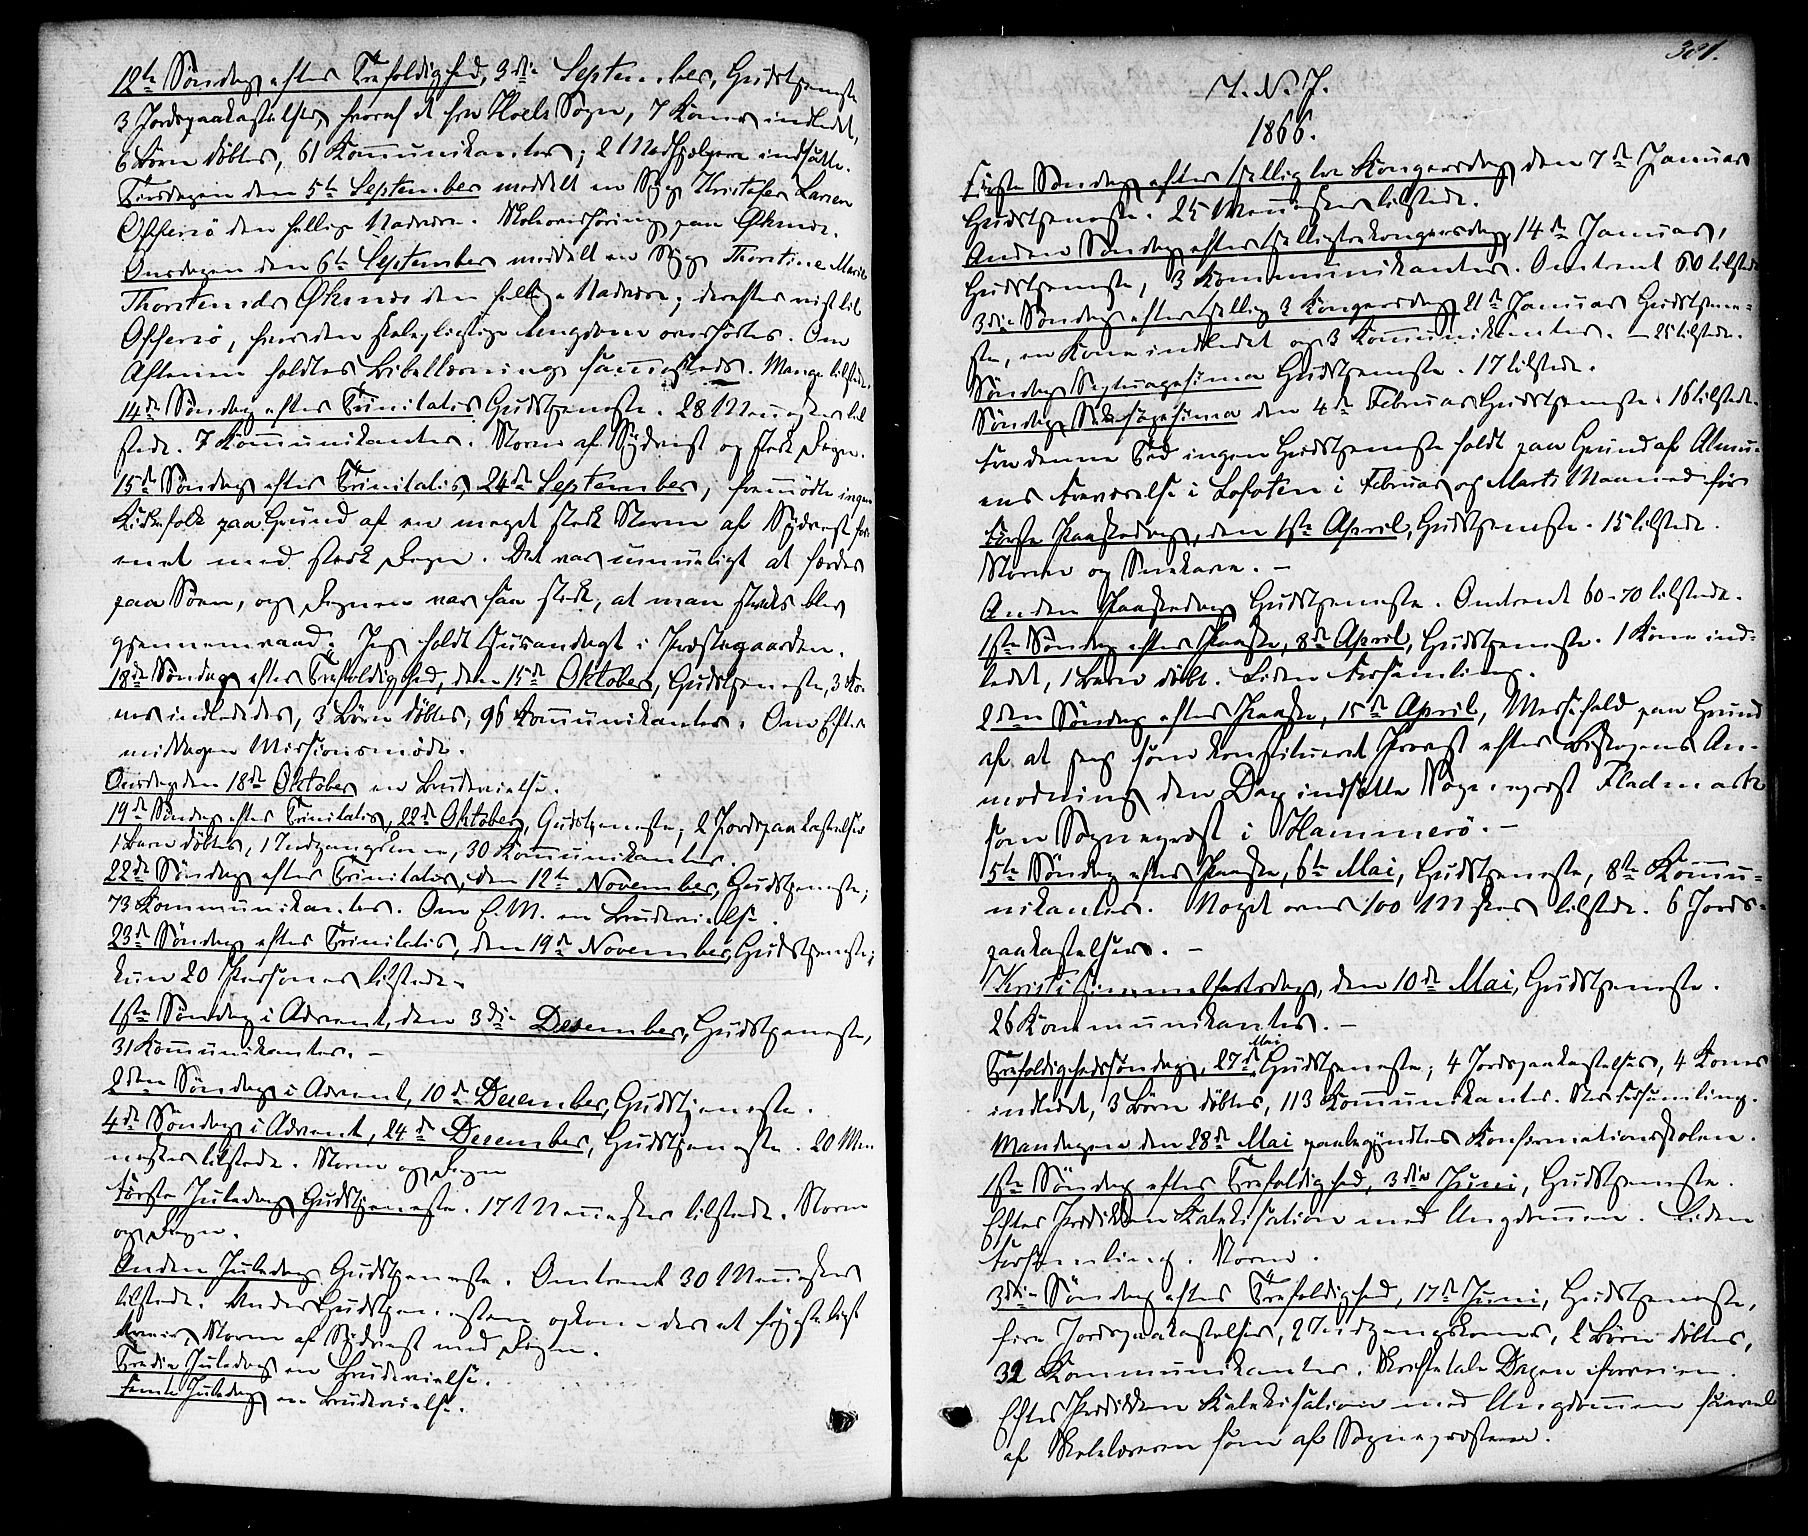 12te Søndag efter Trefoldighed, 3die September, Gudstjeneste
3 Jordpaakastelser, hvoraf et fra Sogn, 7 Koner indledet,
6 Børn døbtes, 61 Kommunikanter; 2 Medhjælpere indsatte.
Tirsdagen den 5te September meddelt en Syg Kristofer Larsen
Offersø den hellige Nadvere. Skoleoverhøring paa Øksnes.
Onsdagen den 6te September meddelt en Syg Thorstine Marie
Thorstensdr Øksnes den hellige Nadvere; derefter reist til
Offersø, hvor den skolepligtige Ungdom overhørtes. Om
Aftenen holdtes Bibellæsning sammesteds. Mange tilstede.
14de Søndag efter Trinitatis Gudstjeneste. 28 Mennesker til
stede. 7 Kommunikanter. Storm af Sydvest og stærk Regn.
15de Søndag efter Trinitatis, 24de September, fremmødte ingen
Kirkefolk paa Grund af en meget stærk Storm af Sydvest for-
enet med stærk Regn. Det var umuligt at færdes
paa Søen, og Regnen var saa stærk, at man straks blev
gjennemvaad. Jeg holdt Husandagt i Præstegaarden.
18de Søndag efter Trefoldighed, den 15de Oktober, Gudstjeneste, 3 Ko-
ner indlededes, 3 Børn døbtes, 96 Kommunikanter. Om Efter
middagen Missionsmøde.
Onsdag den 18de Oktober en Brudevielse.
19de Søndag efter Trinitatis, 22de Oktober, Gudstjeneste, 2 Jordpaakastelser
1 Barn døbtes, 1 Indgangskone, 30 Kommunikanter.
22de Søndag efter Trinitatis, den 12te November, Gudstjeneste;
73 Kommunikanter. Om E.M. en Brudevielse.
23de Søndag efter Trinitatis, den 19de November, Gudstjeneste;
kun 20 Personer tilstede.
1ste Søndag i Advent, den 3die Desember, Gudstjeneste,
31 Kommunikanter. –
2den Søndag i Advent, 10de Desember, Gudstjeneste.
4de Søndag i Advent, 24de Desember, Gudstjeneste. 20 Men
nesker tilstede. Storm og Regn
Første Juledag Gudstjeneste. 17 Mennesker tilstede. Storm
og Regn.
Anden Juledag Gudstjeneste. Omtrent 30 Mennesker
tilstede. Under Gudstjenesten opkom der et
Storm af Sydvest med Regn.
Tredie Juledag en Brudevielse.
Femte Juledag en Brudevielse.
301.
I. N. J.
1866.
Første Søndag efter Hellig tre Kongersdag den 7de Januar
Gudstjeneste. 25 Mennesker tilstede.
Anden Søndag efter Helligtrekongersdag, 14de Januar,
Gudstjeneste, 3 Kommunikanter. Omtrent 60 tilstede
3die Søndag efter Hellig 3 Kongersdag 21de Januar Gudstjene-
ste, en Kone indledet og 3 Kommunikanter. – 25 tilstede.
Søndag Septuagesima Gudstjeneste. 17 tilstede.
Søndag Seksagesima den 4de Februar Gudstjeneste. 16 tilstede.
Fra denne Tid ingen Gudstjeneste holdt paa Grund af Almu-
ens Fraværelse i Lofoten i Februar og Marts Maaned før
Første Paaskedag, den 1ste April, Gudstjeneste. 15 tilstede.
Storm og Snekave. –
Anden Paaskedag Gudstjeneste. Omtrent 60-70 tilstede.
1ste Søndag efter Paaske, 8de April, Gudstjeneste. 1 Kone ind-
ledet, 1 Barn døbt. Liden Forsamling.
2den Søndag efter Paaske, 15de April, Messefald paa Grund
af at jeg som konstitueret Provst efter Biskopens An-
modning den Dag indsatte Sognepræst Fladmark
som Sognepræst i Hammerø. –
5te Søndag efter Paaske, 6te Mai, Gudstjeneste, 8te Kommu-
nikanter. Noget over 100 Msker tilstede. 6 Jords-
paakastelser. –
Kristi Himmelfartsdag, den 10de Mai, Gudstjeneste.
26 Kommunikanter. –
Trefoldighedssøndag, 27de Mai Gudstjeneste; 4 Jordspaakastelser, 4 Koner
indledet, 3 Børn døbtes, 113 Kommunikanter. Stor Forsamling.
Mandagen den 28de Mai paabegyndtes Konfirmationsskolen.
1ste Søndag efter Trefoldighed, 3die Juni, Gudstjeneste.
Efter Prædiken Katekisation med Ungdommen. Liden
Forsamling. Storm.
3die Søndag efter Trefoldighed, 17de Juni, Gudstjeneste,
fire Jordspaakastelser, 2 Indgangskoner, 2 Børn døbtes,
32 Kommunikanter. Skriftetale Dagen iforveien.
Efter Prædiken Katekisation med Ungdommen saavel
af Skolelæreren som af Sognepræsten.